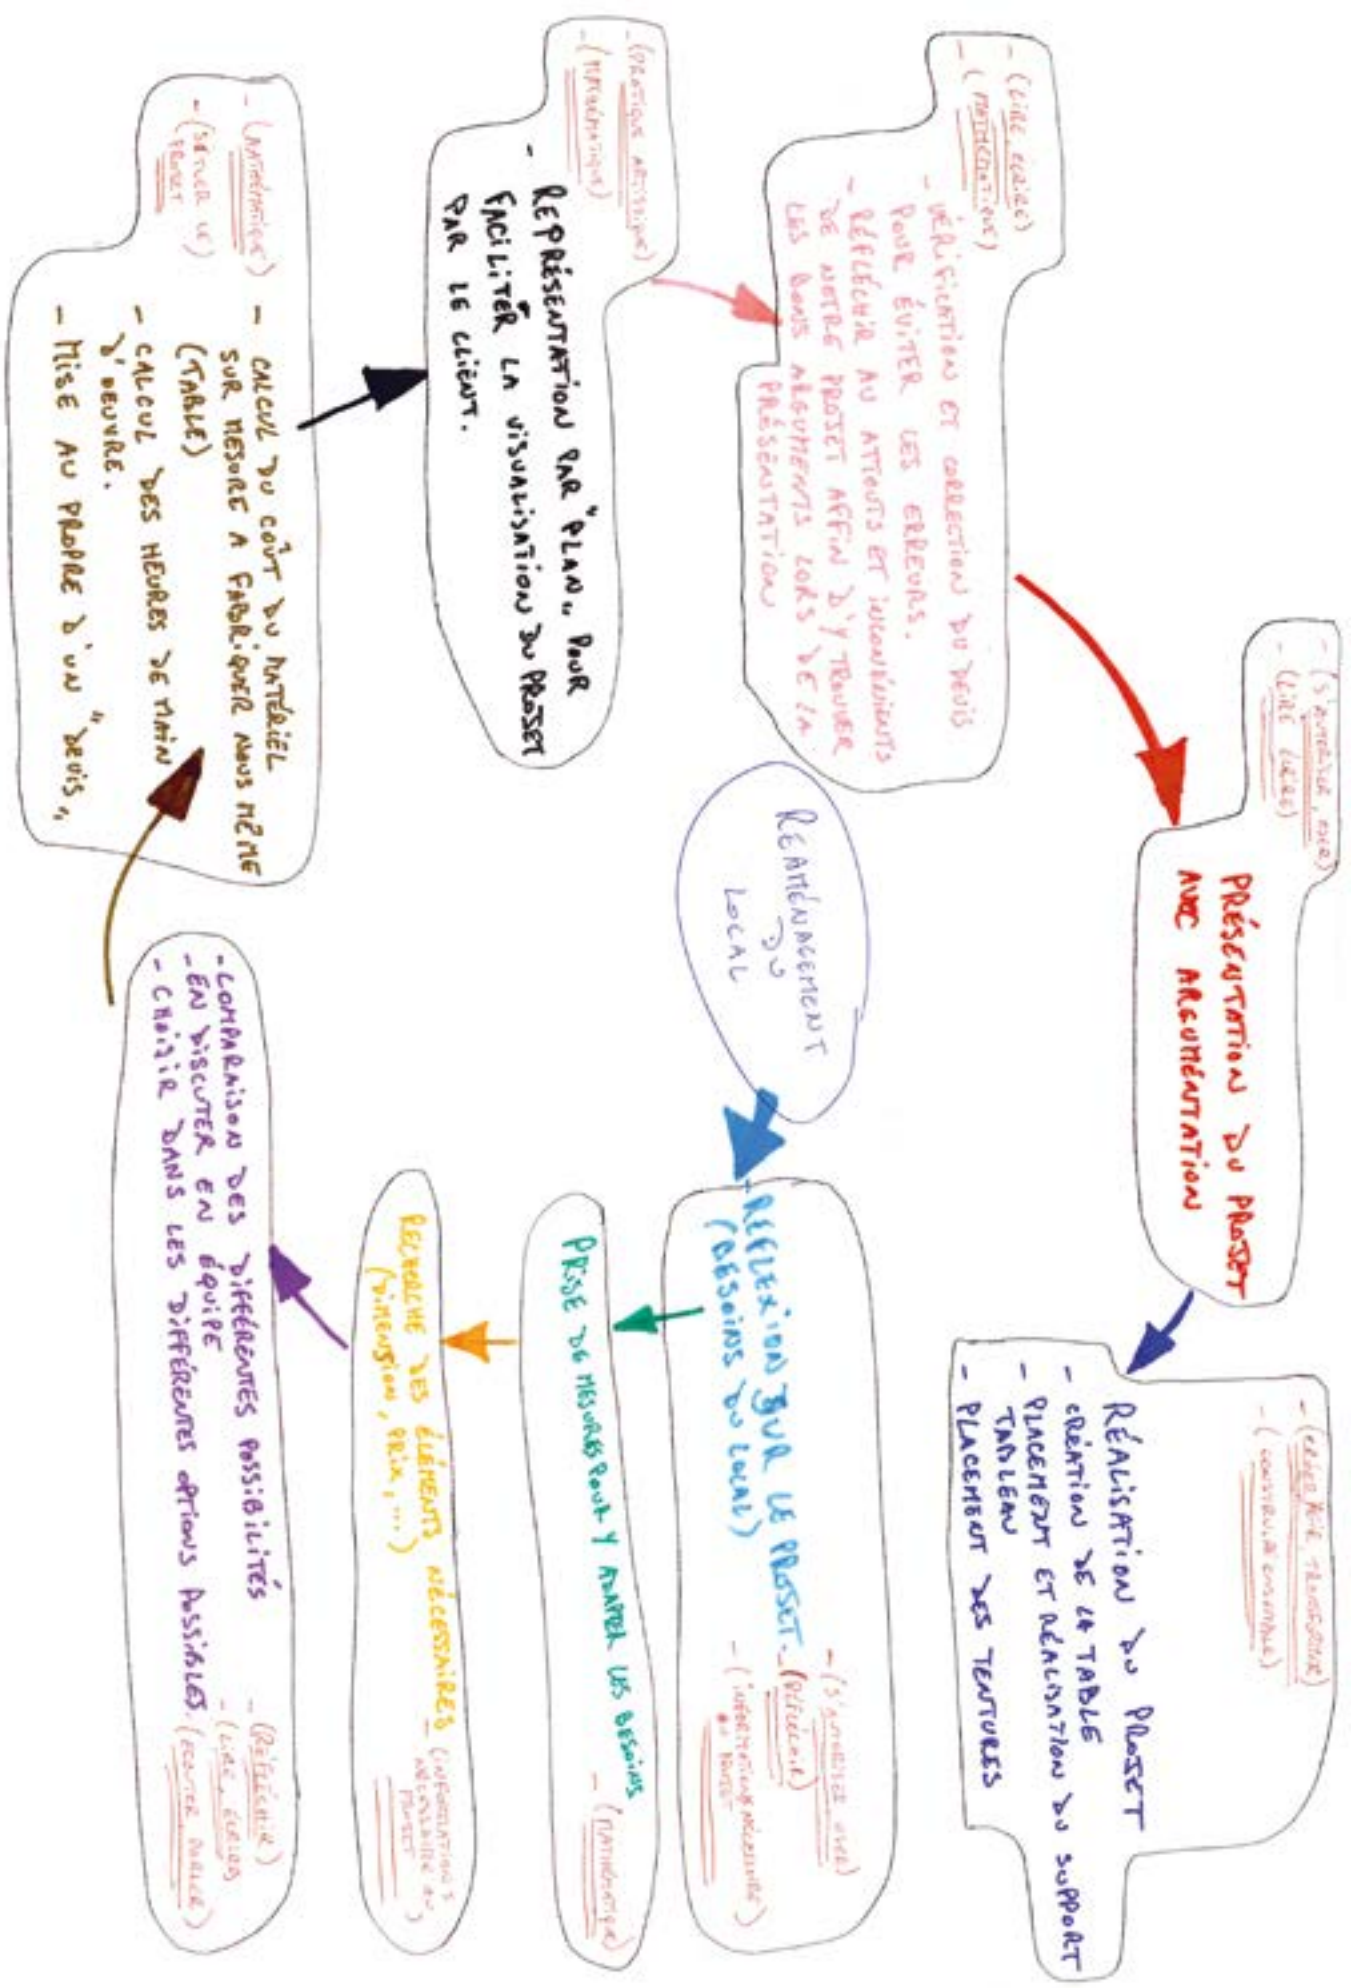 RÉAMÉNAGEMENT
DU
LOCAL
- RÉFLEXION SUR LE PROJET.
(BESOINS DU LOCAL)
- (S'AUTORISER, OSER)
- (RÉFLÉCHIR)
- (INFORMATIONS NÉCESSAIRE)
AU PROJET
PRISE DE MESURES POUR Y ADAPTER LES BESOINS
- (MATHÉMATIQUE)
RECHERCHE DES ÉLÉMENTS NÉCESSAIRES
(DIMENSION, PRIX, ....)
- (INFORMATIONS
NÉCESSAIRE AU
PROJET)
- COMPARAISON DES DIFFÉRENTES POSSIBILITÉS
- EN DISCUTER EN ÉQUIPE
- CHOISIR DANS LES DIFFÉRENTES OPTIONS POSSIBLES.
- (RÉFLÉCHIR)
- (LIRE, ÉCRIRE)
(ECOUTER, PARLER)
- (MATHÉMATIQUE)
- (SITUER LE)
PROJET
- CALCUL DU COÛT DU MATÉRIEL
SUR MESURE A FABRIQUER NOUS MÊME
(TABLE)
- CALCUL DES HEURES DE MAIN
D'OEUVRE.
- MISE AU PROPRE D'UN "DEVIS"
- (PRATIQUE ARTISTIQUE)
- (MATHÉMATIQUE)
- REPRÉSENTATION PAR "PLAN" POUR
FACILITER LA VISUALISATION DU PROJET
PAR LE CLIENT.
- (LIRE, ECRIRE)
- (MATHÉMATIQUE)
- VÉRIFICATION ET CORRECTION DU DEVIS
POUR ÉVITER LES ERREURS.
- RÉFLÉCHIR AU ATTOUTS ET INCONVÉNIENTS
DE NOTRE PROJET AFFIN D'Y TROUVER
LES BONS ARGUMENTS LORS DE LA
PRÉSENTATION
- (S'AUTORISER, OSER)
- (LIRE ECRIRE)
PRÉSENTATION DU PROJET
AVEC ARGUMÉNTATION
- (CRÉER AGIR TRANSFORMER)
- (CONSTRUIRE ENSEMBLE)
RÉALISATION DU PROJET
- CRÉATION DE LA TABLE
- PLACEMENT ET RÉALISATION DU SUPPORT
TABLEAU
- PLACEMENT DES TENTURES